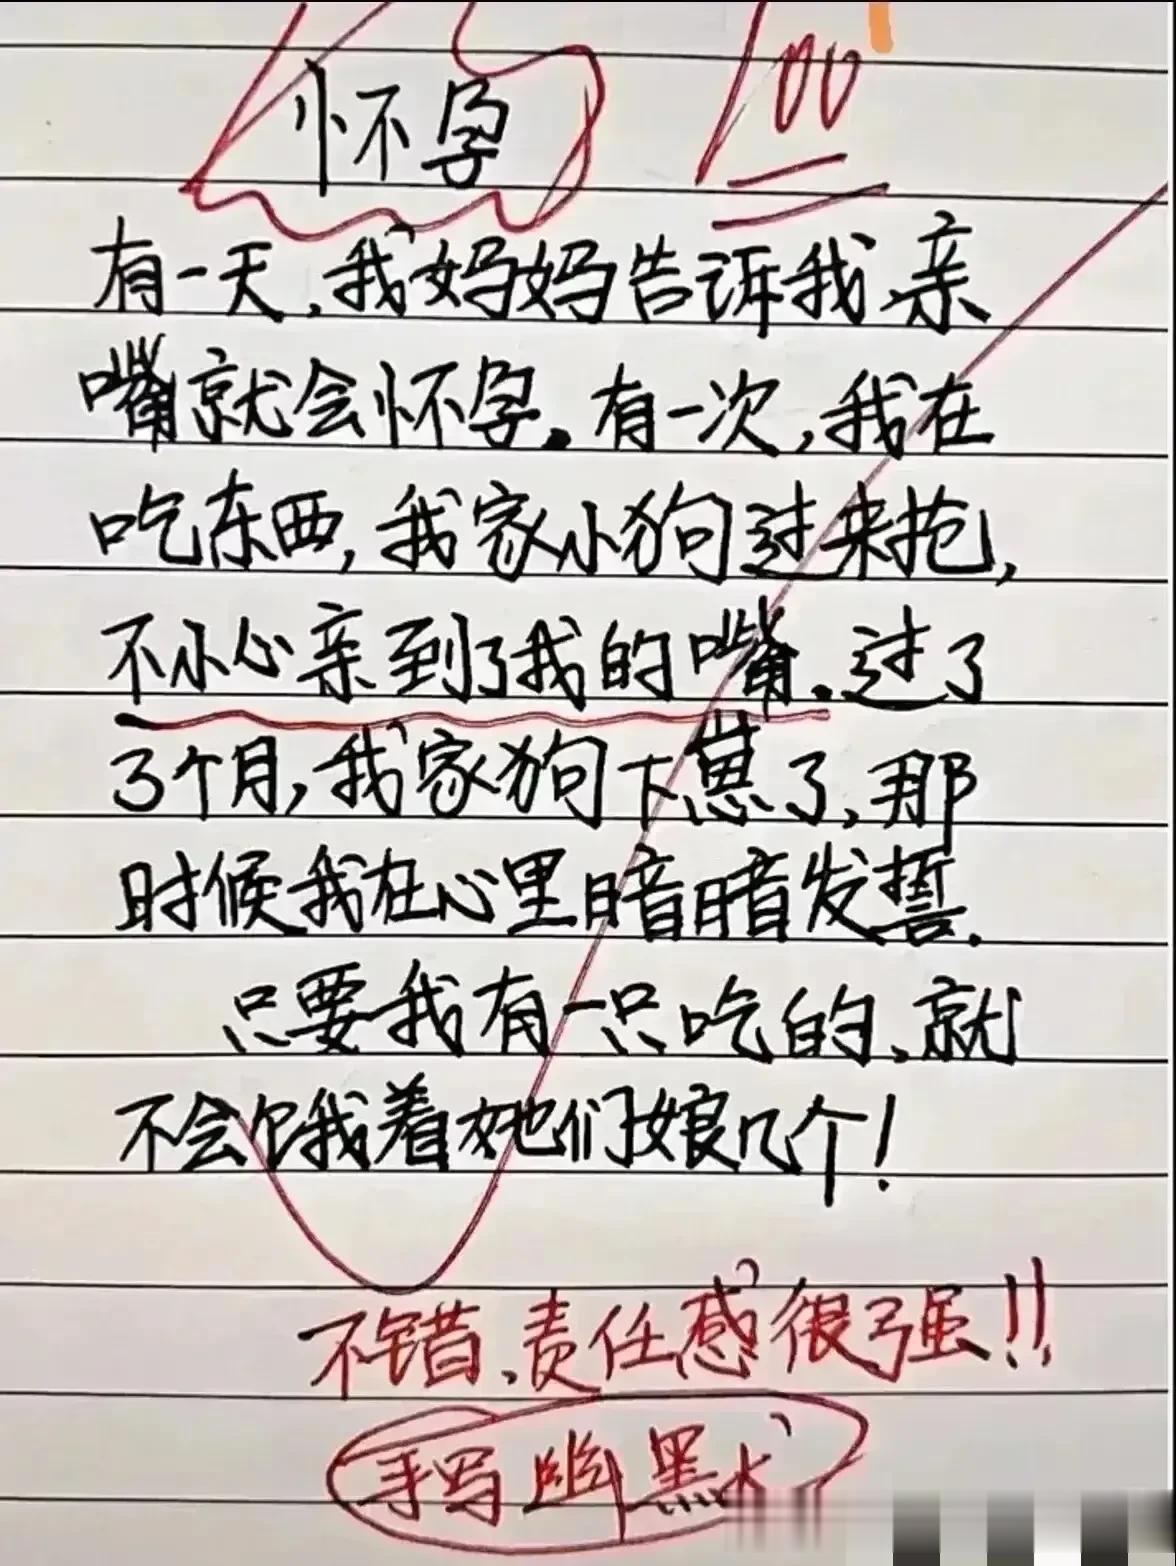 怀孕 100
有一天,我妈妈告诉我,亲
嘴就会怀孕。有一次,我在
吃东西,我家小狗过来抢,
不小心亲到了我的嘴。过了
3个月,我家狗下崽了,那
时候我在心里暗暗发誓.
只要我有一只吃的、就
不会饿着她们娘几个!
不错、责任感很强!!
手写幽黑犬